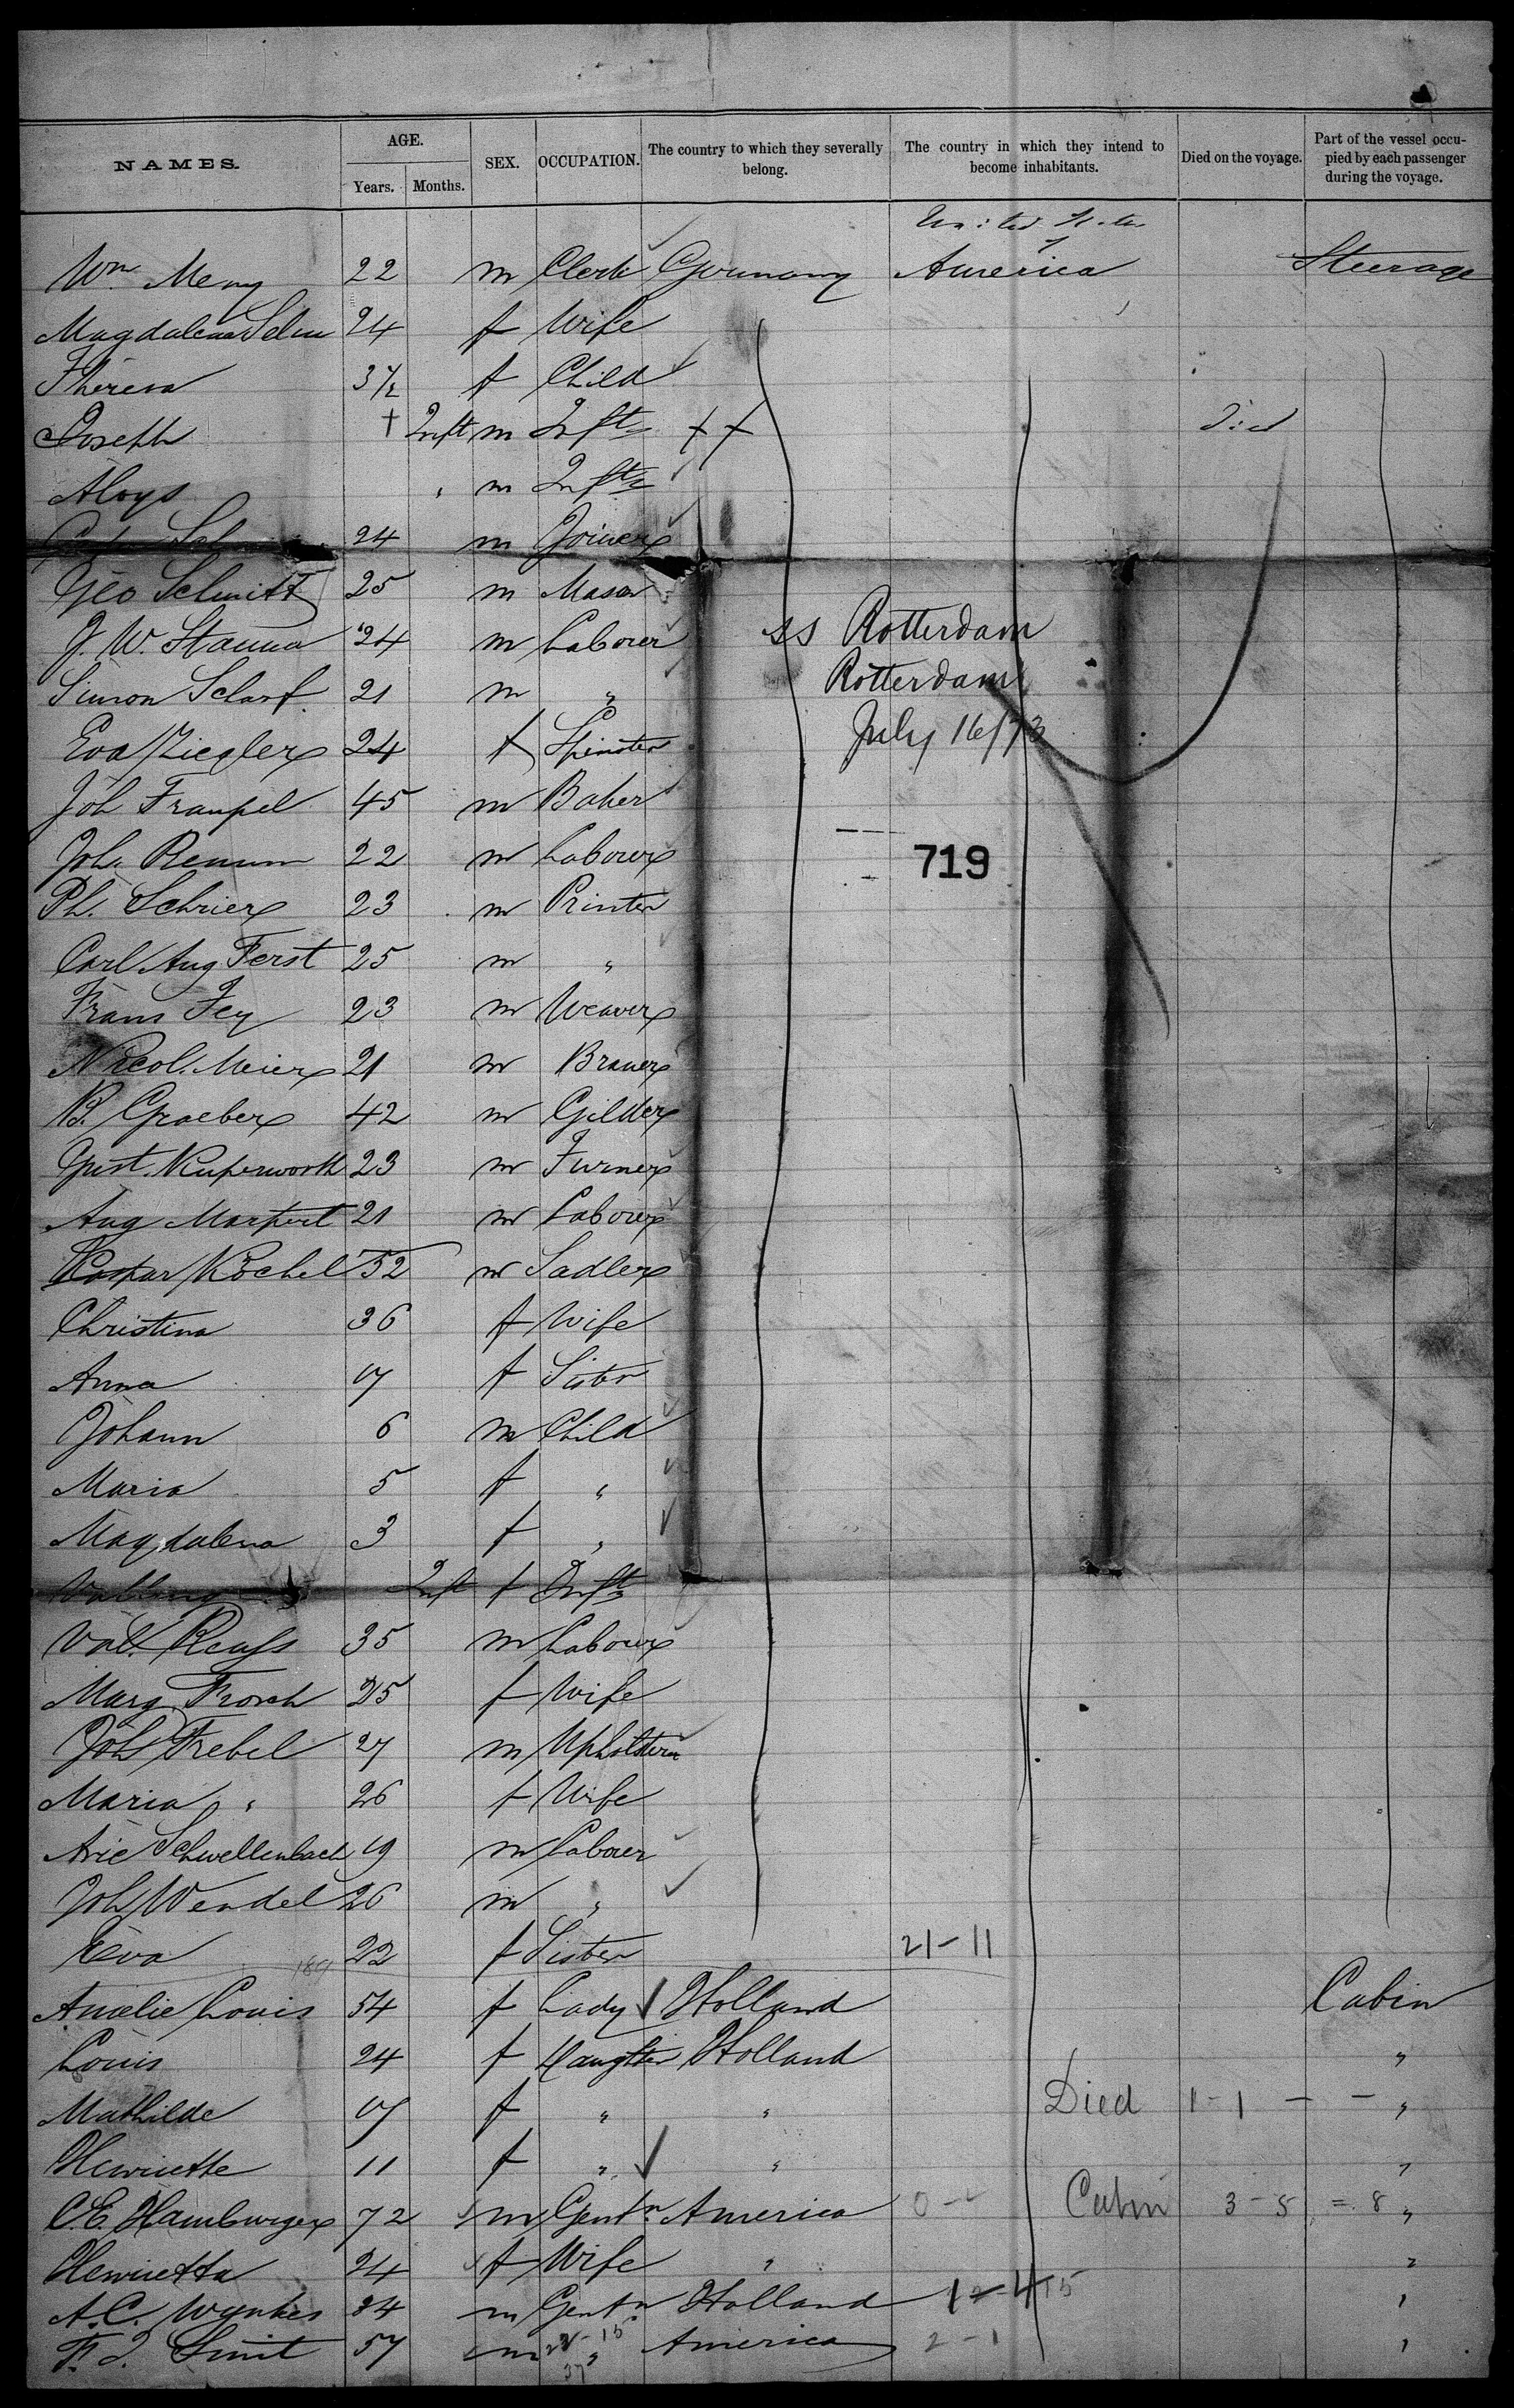 NAMES. AGE. SEX. OCCUPATION. The country to which they severally belong. The country in which they intend to become inhabitants. Died on the voyage. Part of the vessel occupied by each passenger during the voyage.
Years. Months.
United States
Wm. 22 m Clerk Germany America Steerage
Magdalena 24 f Wife
3 1/2 f Child
Joseph † Inft m Inft ++ Died
Aloys " m Inft
24 m Joiner
Geo Schmitt 25 m Mason
J. W. 24 m Laborer ss Rotterdam
Simon Scharf 21 m " Rotterdam
Eva Ziegler 24 f Spinster July 16/73
Joh Frampel 45 m Baker
Joh. 22 m Laborer 719
Ph. Schrier 23 m Printer
Carl Aug Ferst 25 m "
Frans Fey 23 m Weaver
Nicol. Meier 21 m Brauer
B. Graeber 42 m Gilder
Gust. Kupferworth 23 m Turner
Aug Markert 21 m Laborer
Kaspar Kochel 52 m Sadler
Christina 36 f Wife
Anna 17 f Sister
Johann 6 m Child
Maria 5 f "
Magdalena 3 f "
Inft f Inft
Val. Reuss 35 m Laborer
Marg Frosch 25 f Wife
Joh Trebel 27 m Upholsterer
Maria " 26 f Wife
Arie Schwellenbach 19 m Laborer
Joh Wendel 26 m "
Eva 22 f Sister 21-11
Amelie Louis 54 f Lady Holland Cabin
Louis 24 f Daughter Holland "
Mathilde 17 f " " Died 1-1 - - "
Henriette 11 f " " "
C. E. Hamburger 72 m Gentn America Cabin 3-5 = 8 "
Henrietta 24 f Wife " "
A. C. 34 m Gentn Holland "
Smit 57 m " America 2-1 "